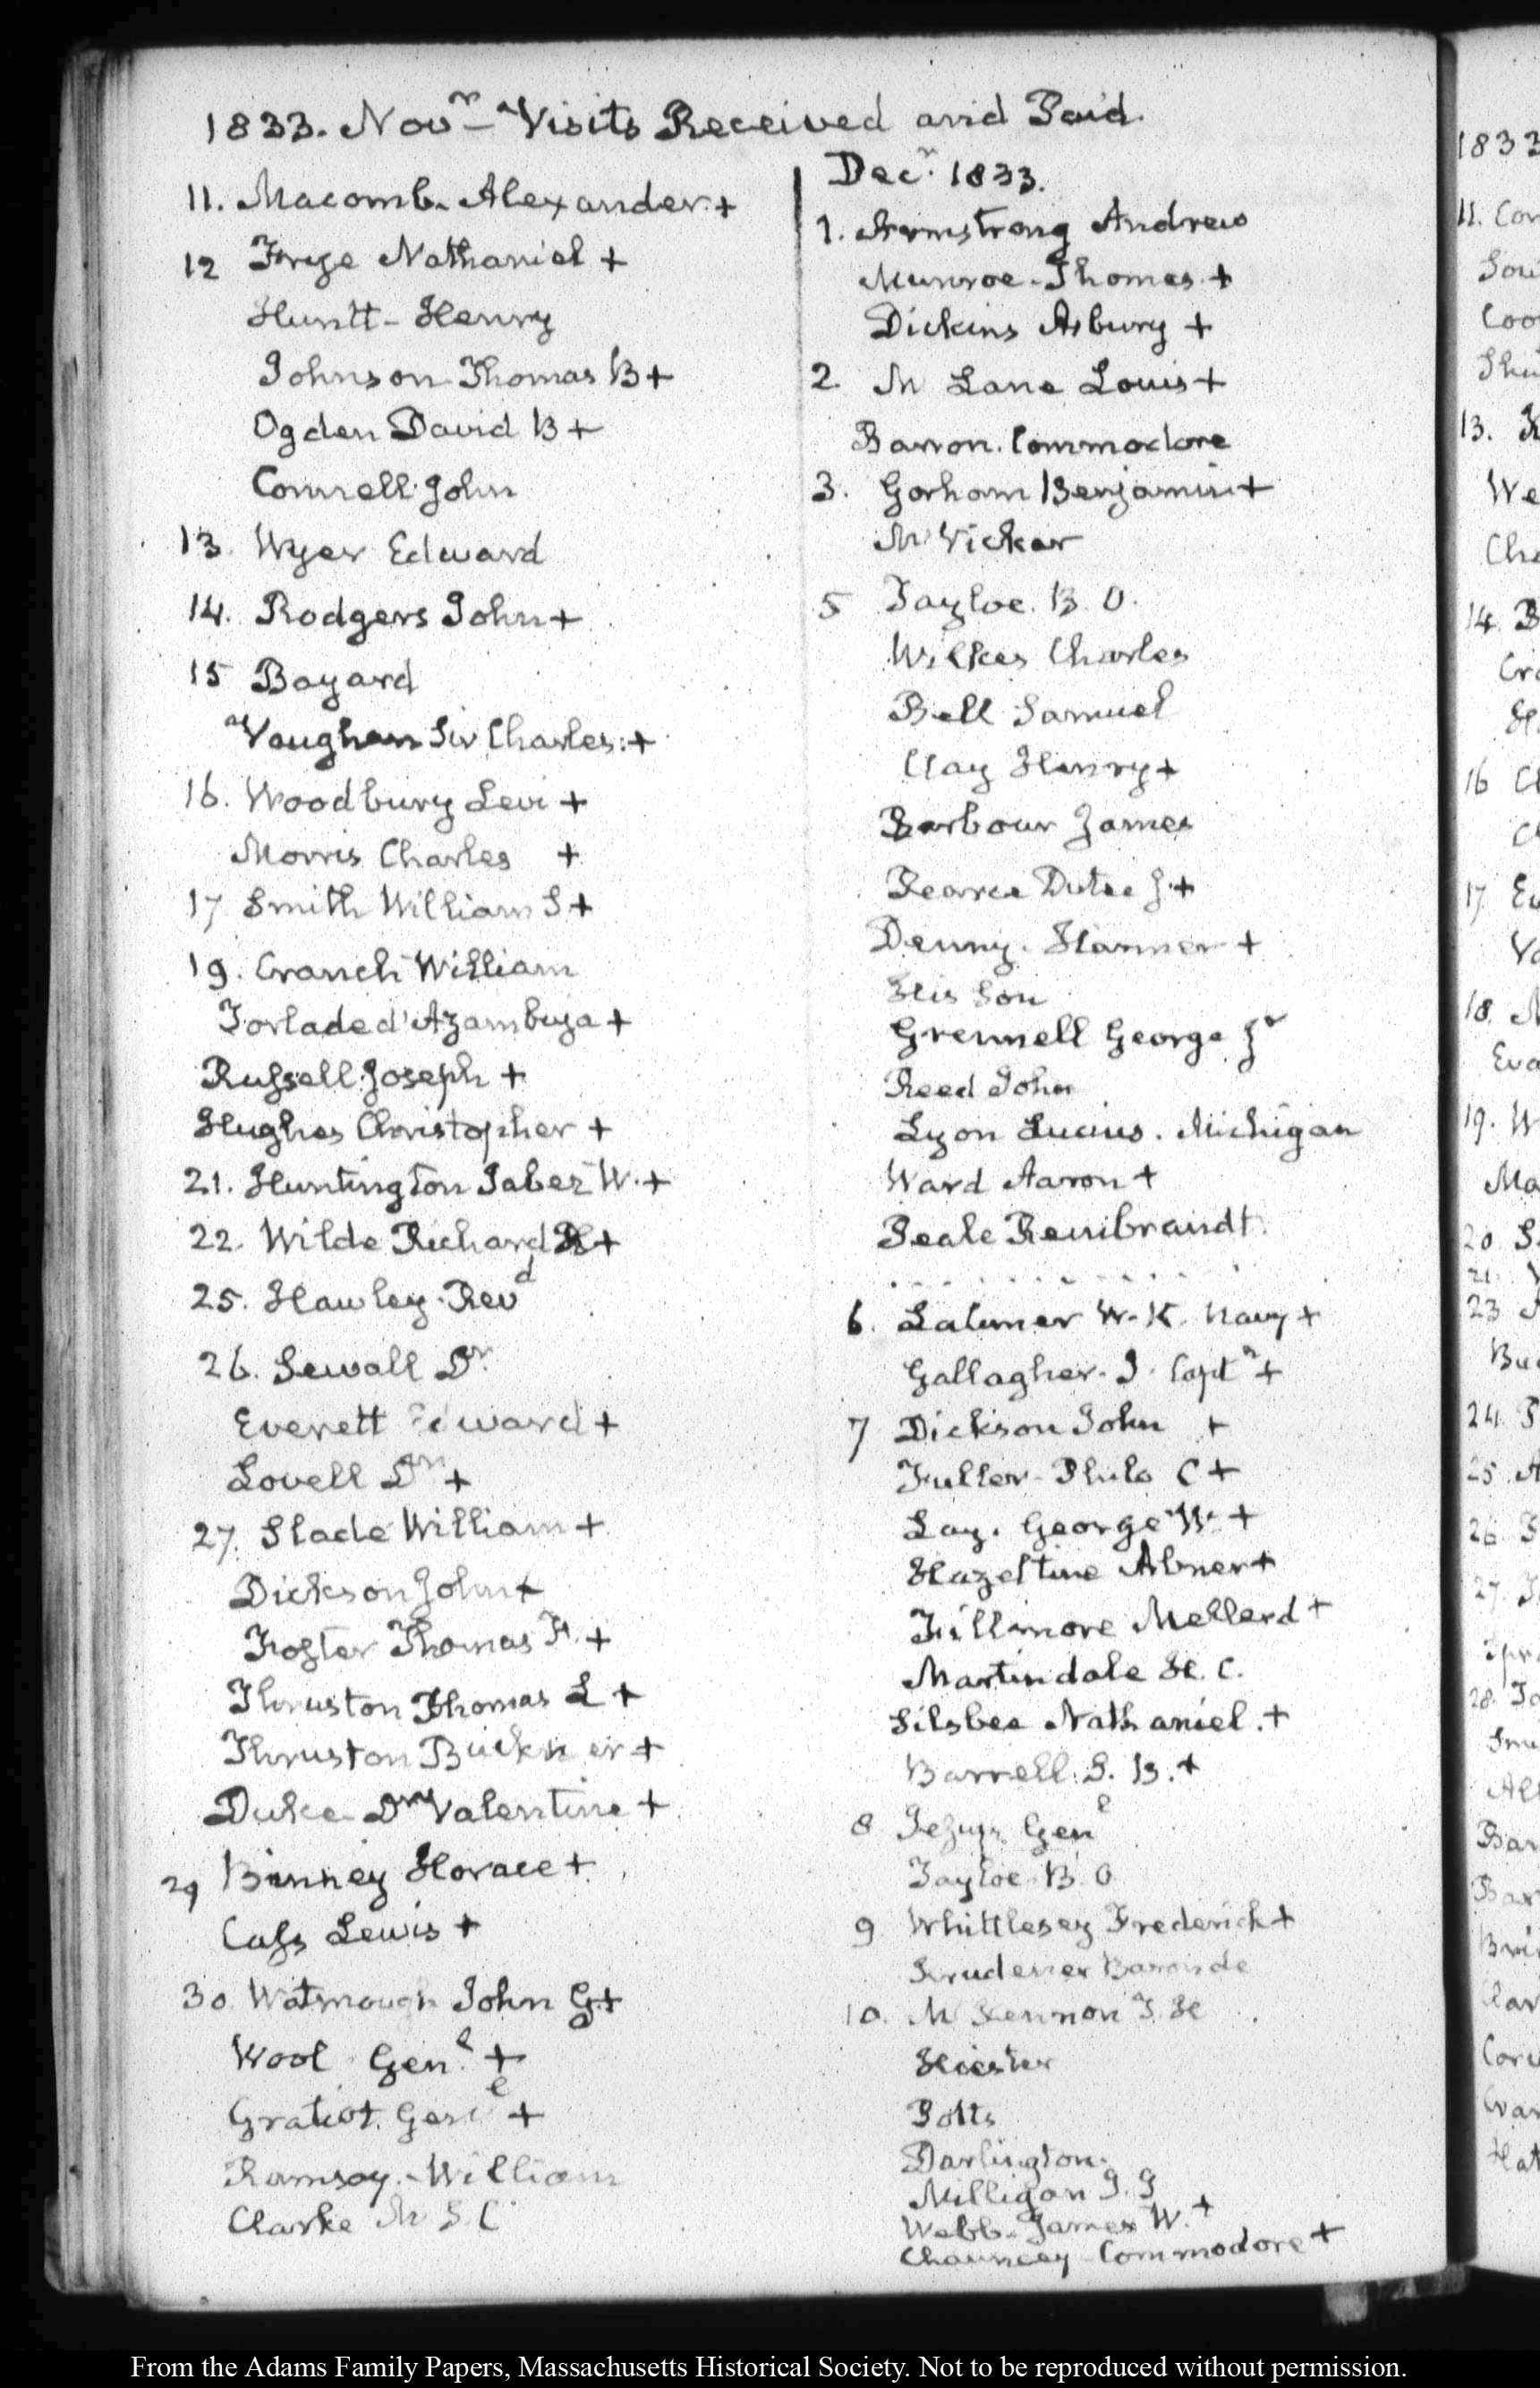 1833. Novr - Visits Received and Paid.
11. Macomb. Alexander +
12 Frye Nathaniel +
Huntt - Henry
Johnson Thomas B +
Ogden David B +
Connell John
13. Wyer Edward
14. Rodgers John +
15 Bayard
Vaughan Sir Charles. +
16. Woodbury Levi +
Morris Charles +
17 Smith William S +
19. Cranch William
Torlade d'Azambuja +
Russell Joseph +
Hughes Christopher +
21. Huntington Jabez W. +
22. Wilde Richard H +
25. Hawley. Revd
26. Sewall Dr.
Everett Edward +
Lovell Dr +
27. Slade William +
Dickson John +
Foster Thomas F. +
Thruston Thomas L +
Thruston Buckner +
Duke Dr Valentine +
29 Binney Horace +
Cass Lewis +
30 Watmough John G +
Wool Genl. +
Gratiot. Genl +
Ramsay. William
Clarke M S. C
Decr. 1833.
1. Armstrong Andrew
Munroe. Thomas. +
Dickins Asbury +
2. Mc Lane Louis +
Barron. Commodore
3. Gorham Benjamin +
McVickar
5 Tayloe. B. O.
Wilkes Charles
Bell Samuel
Clay Henry +
Barbour James
Pearce Dutee J. +
Denny. Harmar +
His Son
Grennell George Jr
Reed John
Lyon Lucius. Michigan
Ward Aaron +
Peale Rembrandt.
6. Latimer W. K. Navy +
Gallagher. J. Captn +
7 Dickson John +
Fuller - Philo C +
Lay. George W. +
Hazeltine Abner +
Fillimore Mellerd +
Martindale H. C.
Silsbee Nathaniel. +
Barrell. S. B. +
8 Jesup Genl
Tayloe B. O
9 Whittlesey Frederick +
Krudener Baron de
10. Mc Kennon T. H
Hiester
Potts
Darlington.
Milligan J. J
Webb. James W. +
Chauncey Commodore +
1833
11. Cor
Sou
Coo
Shu
13.
We
Cha
14. B
Cra
16 Cl
17. Ev
18.
Eva
19. W
Ma
20 S
21.
23
Bu
24.
25. A
26.
27.
Spr
28.
Smi
All
Bar
Bri
Clar
Cor
Hat
From the Adams Family Papers, Massachusetts Historical Society. Not to be reproduced without permission.